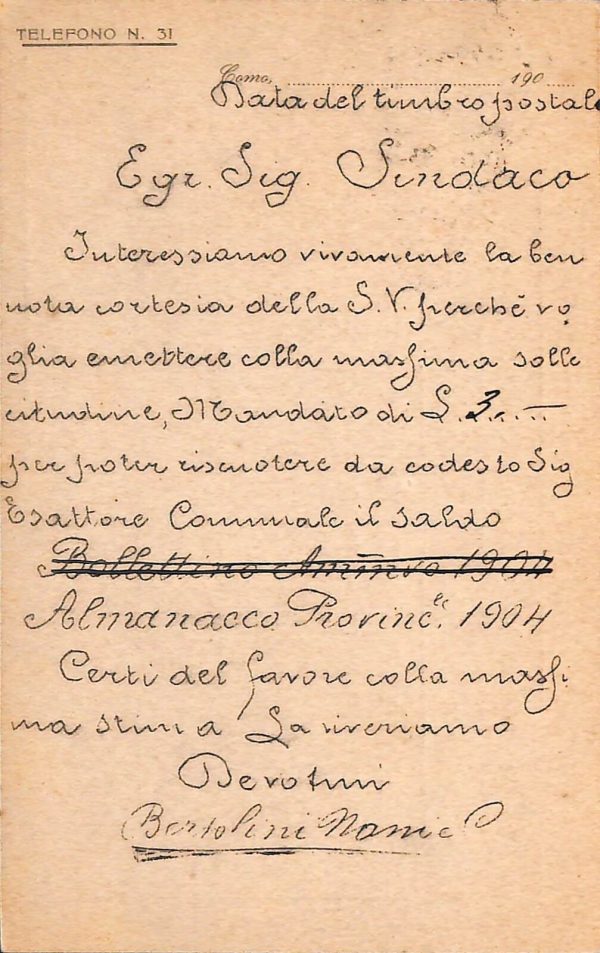 TELEFONO N. 31
Como, 190
Data del timbro postale
Egr. Sig. Sindaco
Interessiamo vivamente la ben
nota cortesia della S. V. perché vo
glia emettere colla massima solle
citudine, Mandato di L. 3.. —
per poter riscuotere da codesto Sig
Esattore Comunale il saldo
Bollettino Ammvo 1904
Almanacco Provinc.le 1904
Certi del favore colla massi
ma stima La riveriamo
Devotmi
Bertolini Nani e C